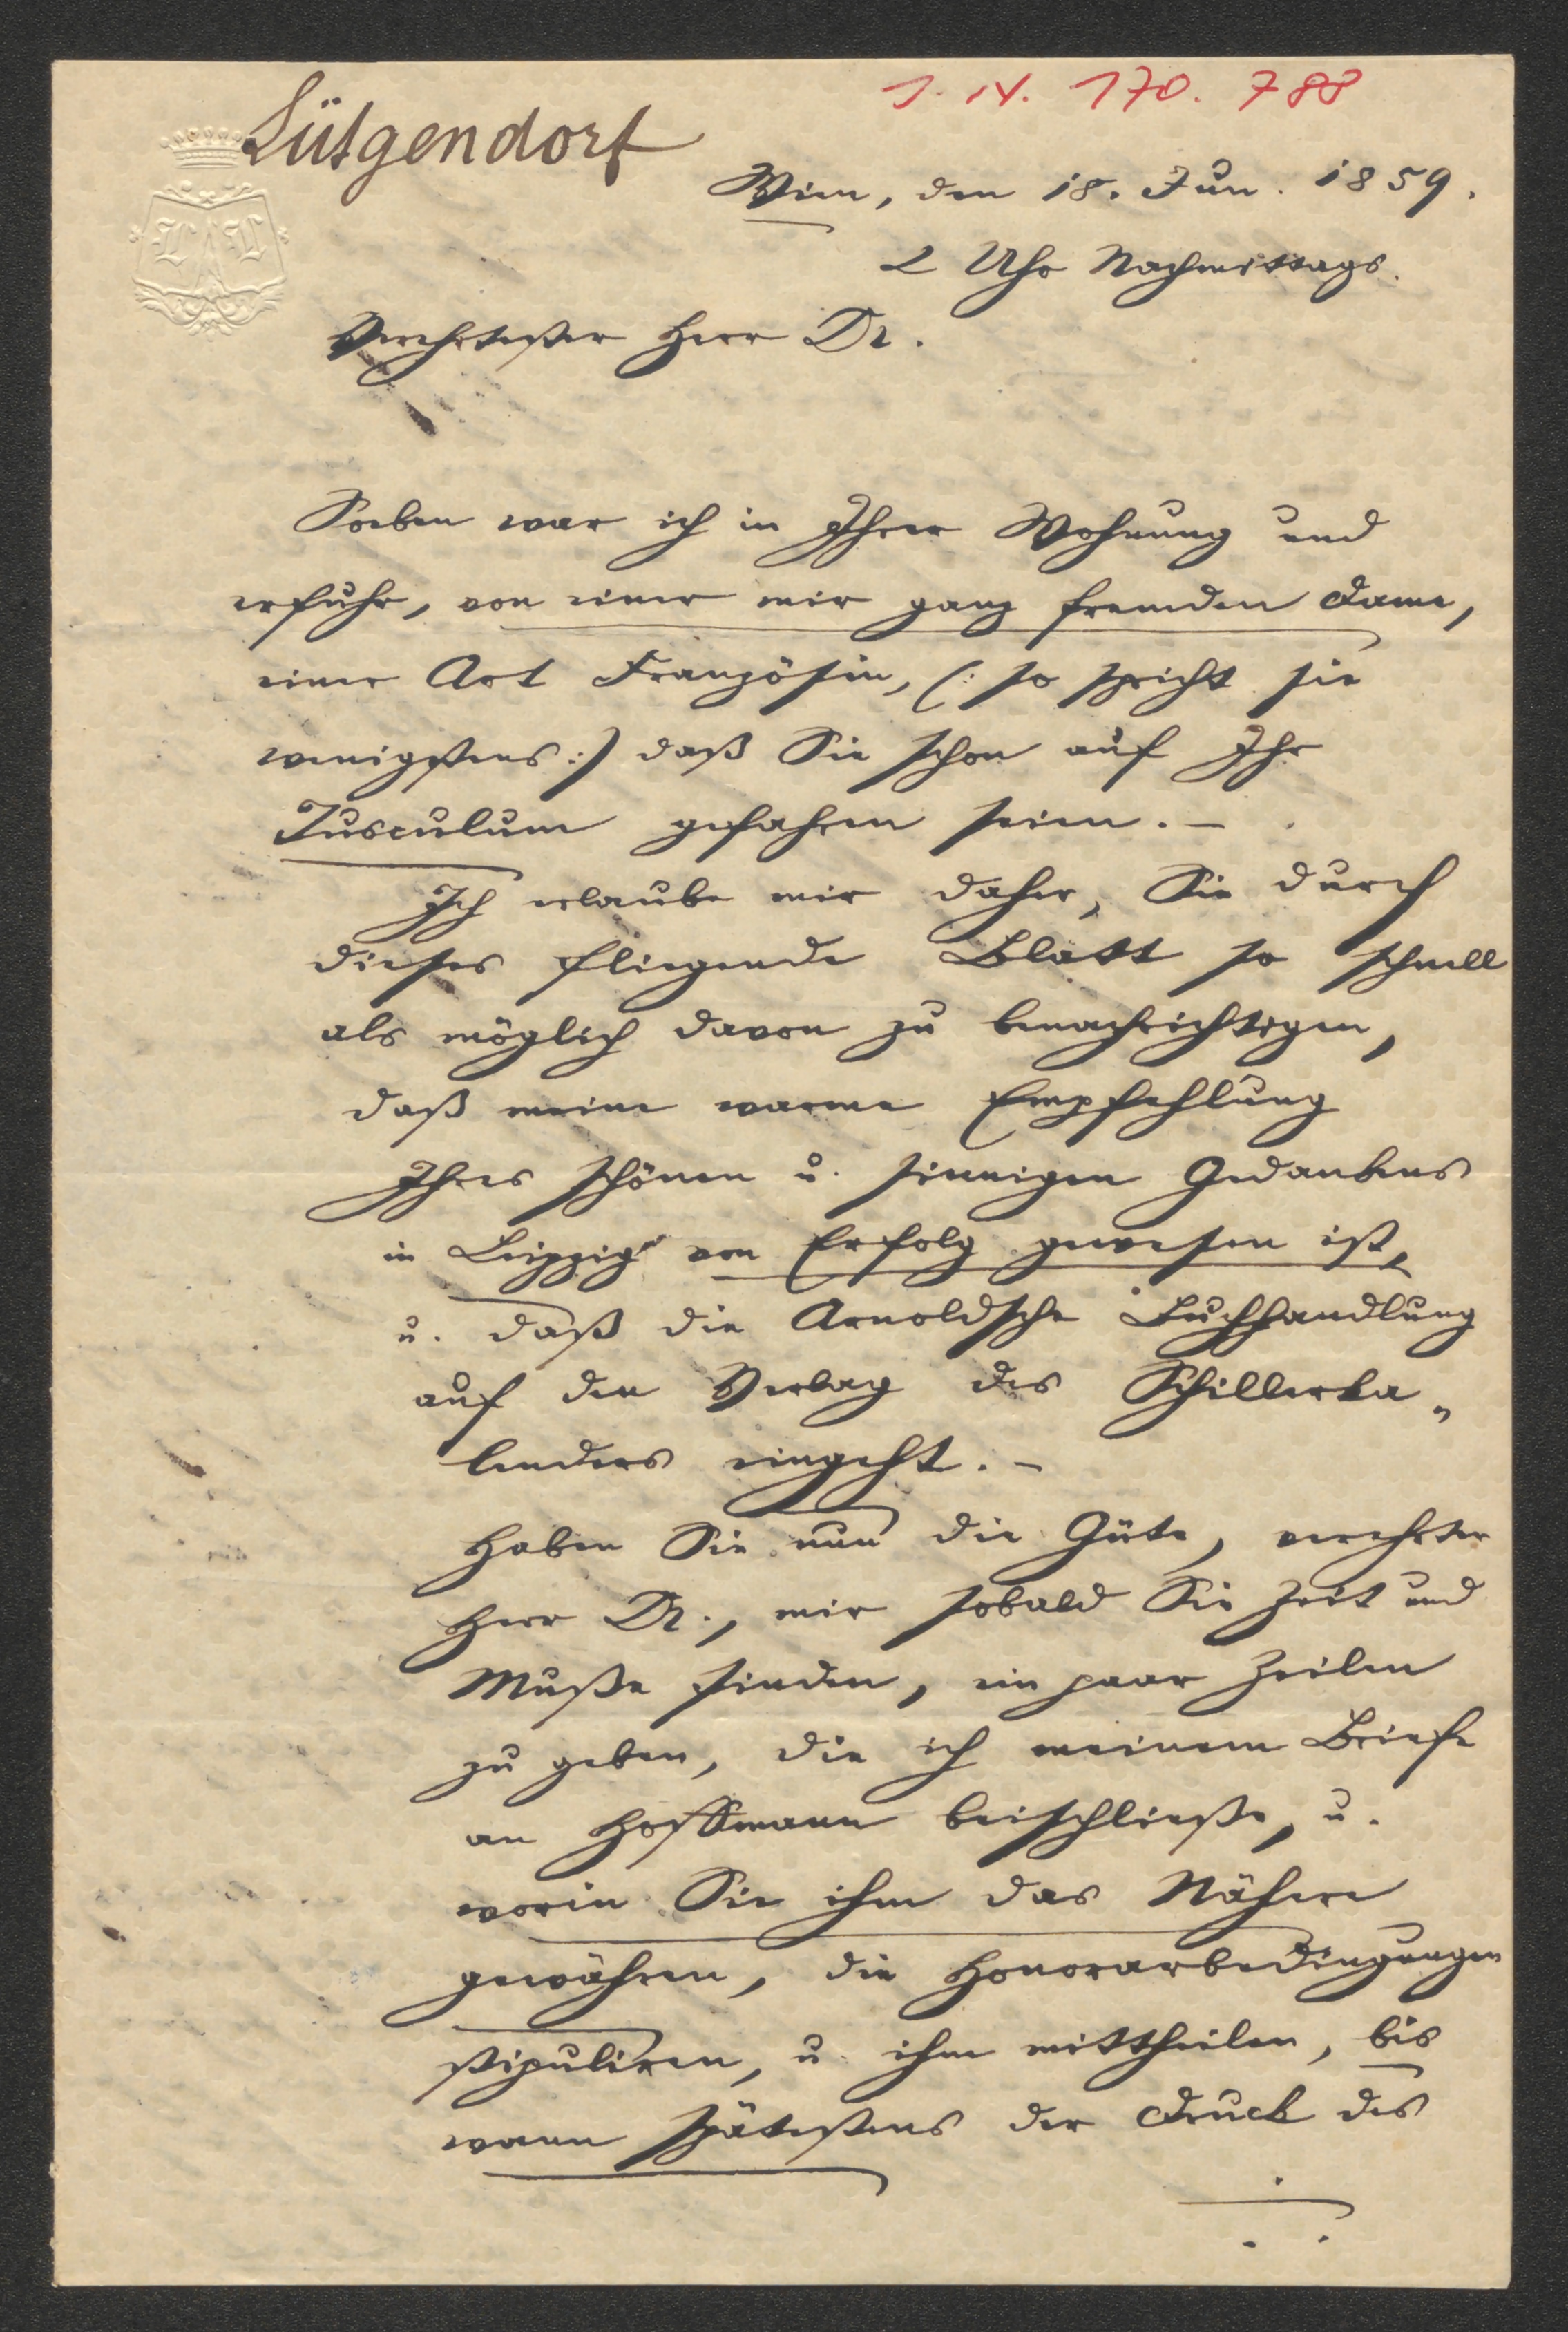 J. N. 170.788
Lütgendorf
Wien, den 18. Jun. 1859.
2 Uhr Nachmittags.
Verehrtester Herr Dr.
Soeben war ich in Ihrer Wohnung und
erfuhr, von einer mir ganz fremden Dame,
einer Art Französin, (: so spricht sie
wenigstens :) daß Sie schon auf Ihr
Tusculum gefahren seien. –
Ich erlaube mir daher, Sie durch
dieses fliegende Blatt so schnell
als möglich davon zu benachrichtigen,
daß meine warme Empfehlung
Ihres schönen u. sinnigen Gedankens
in Leipzig von Erfolg gewesen ist,
u. daß die Arnoldsche Buchhandlung
auf den Verlag des Schillerka„
lenders eingeht. –
Haben Sie nun die Güte, verehrter
Herr Dr., mir sobald Sie Zeit und
Muße finden, ein paar Zeilen
zu geben, die ich meinem Briefe
an Hoffmann beischließe, u.
worin Sie ihm das Nähere
gewähren, die Honorarbedingungen
stipuliren, u. ihm mittheilen, bis
wann spätestens der Druck des